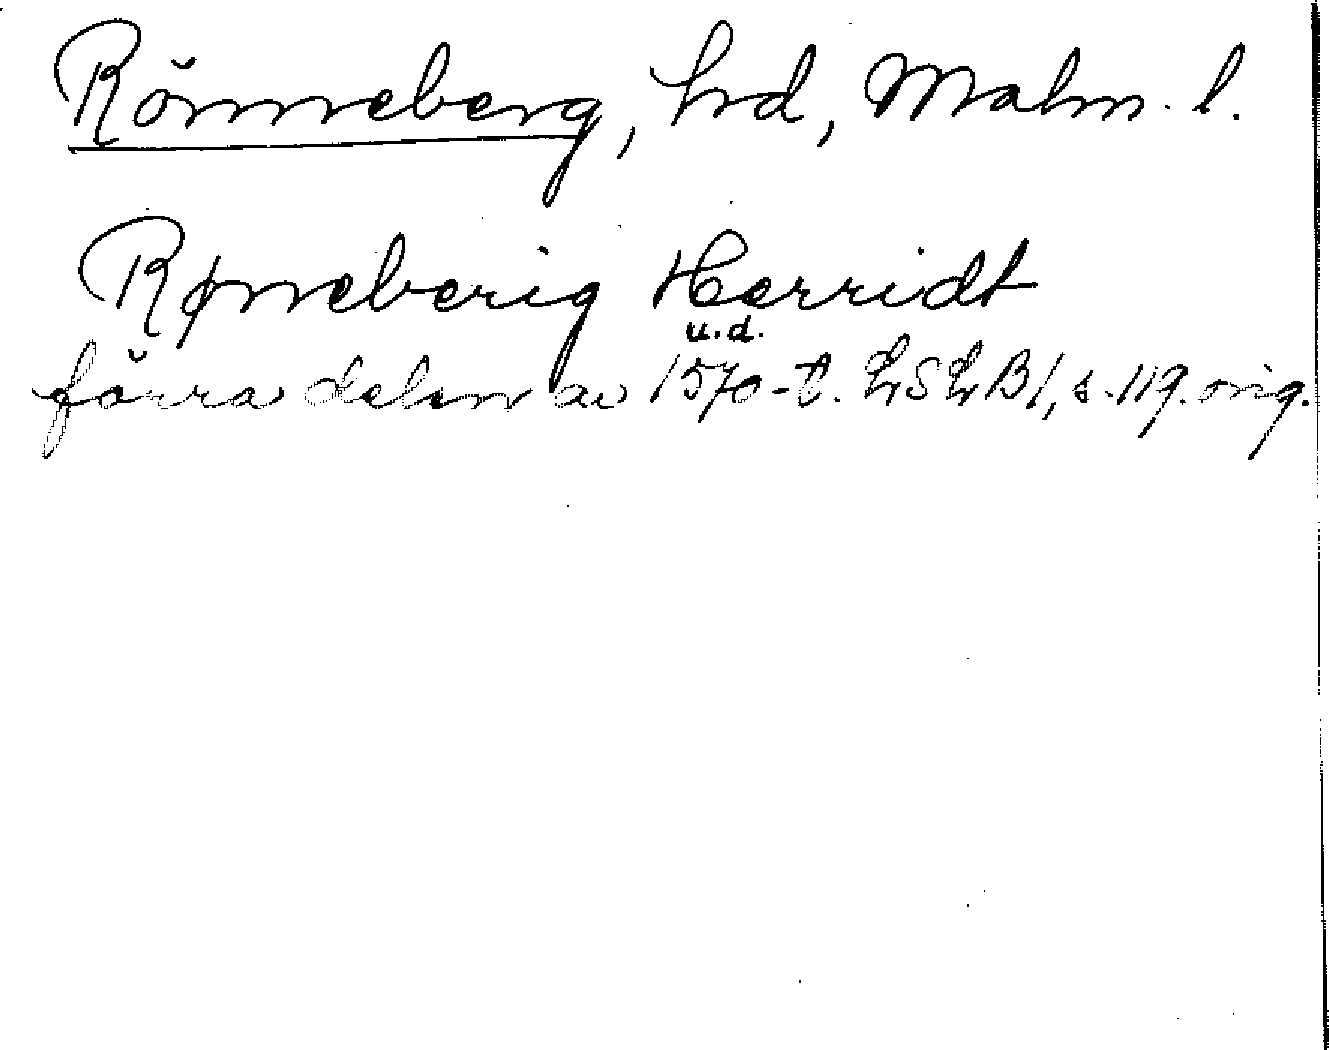 Rönneberg, hrd, Malm. l.
Røneberig Herridt
u.d.
förra delen av 1570-t. LSLB1, s. 119. orig.